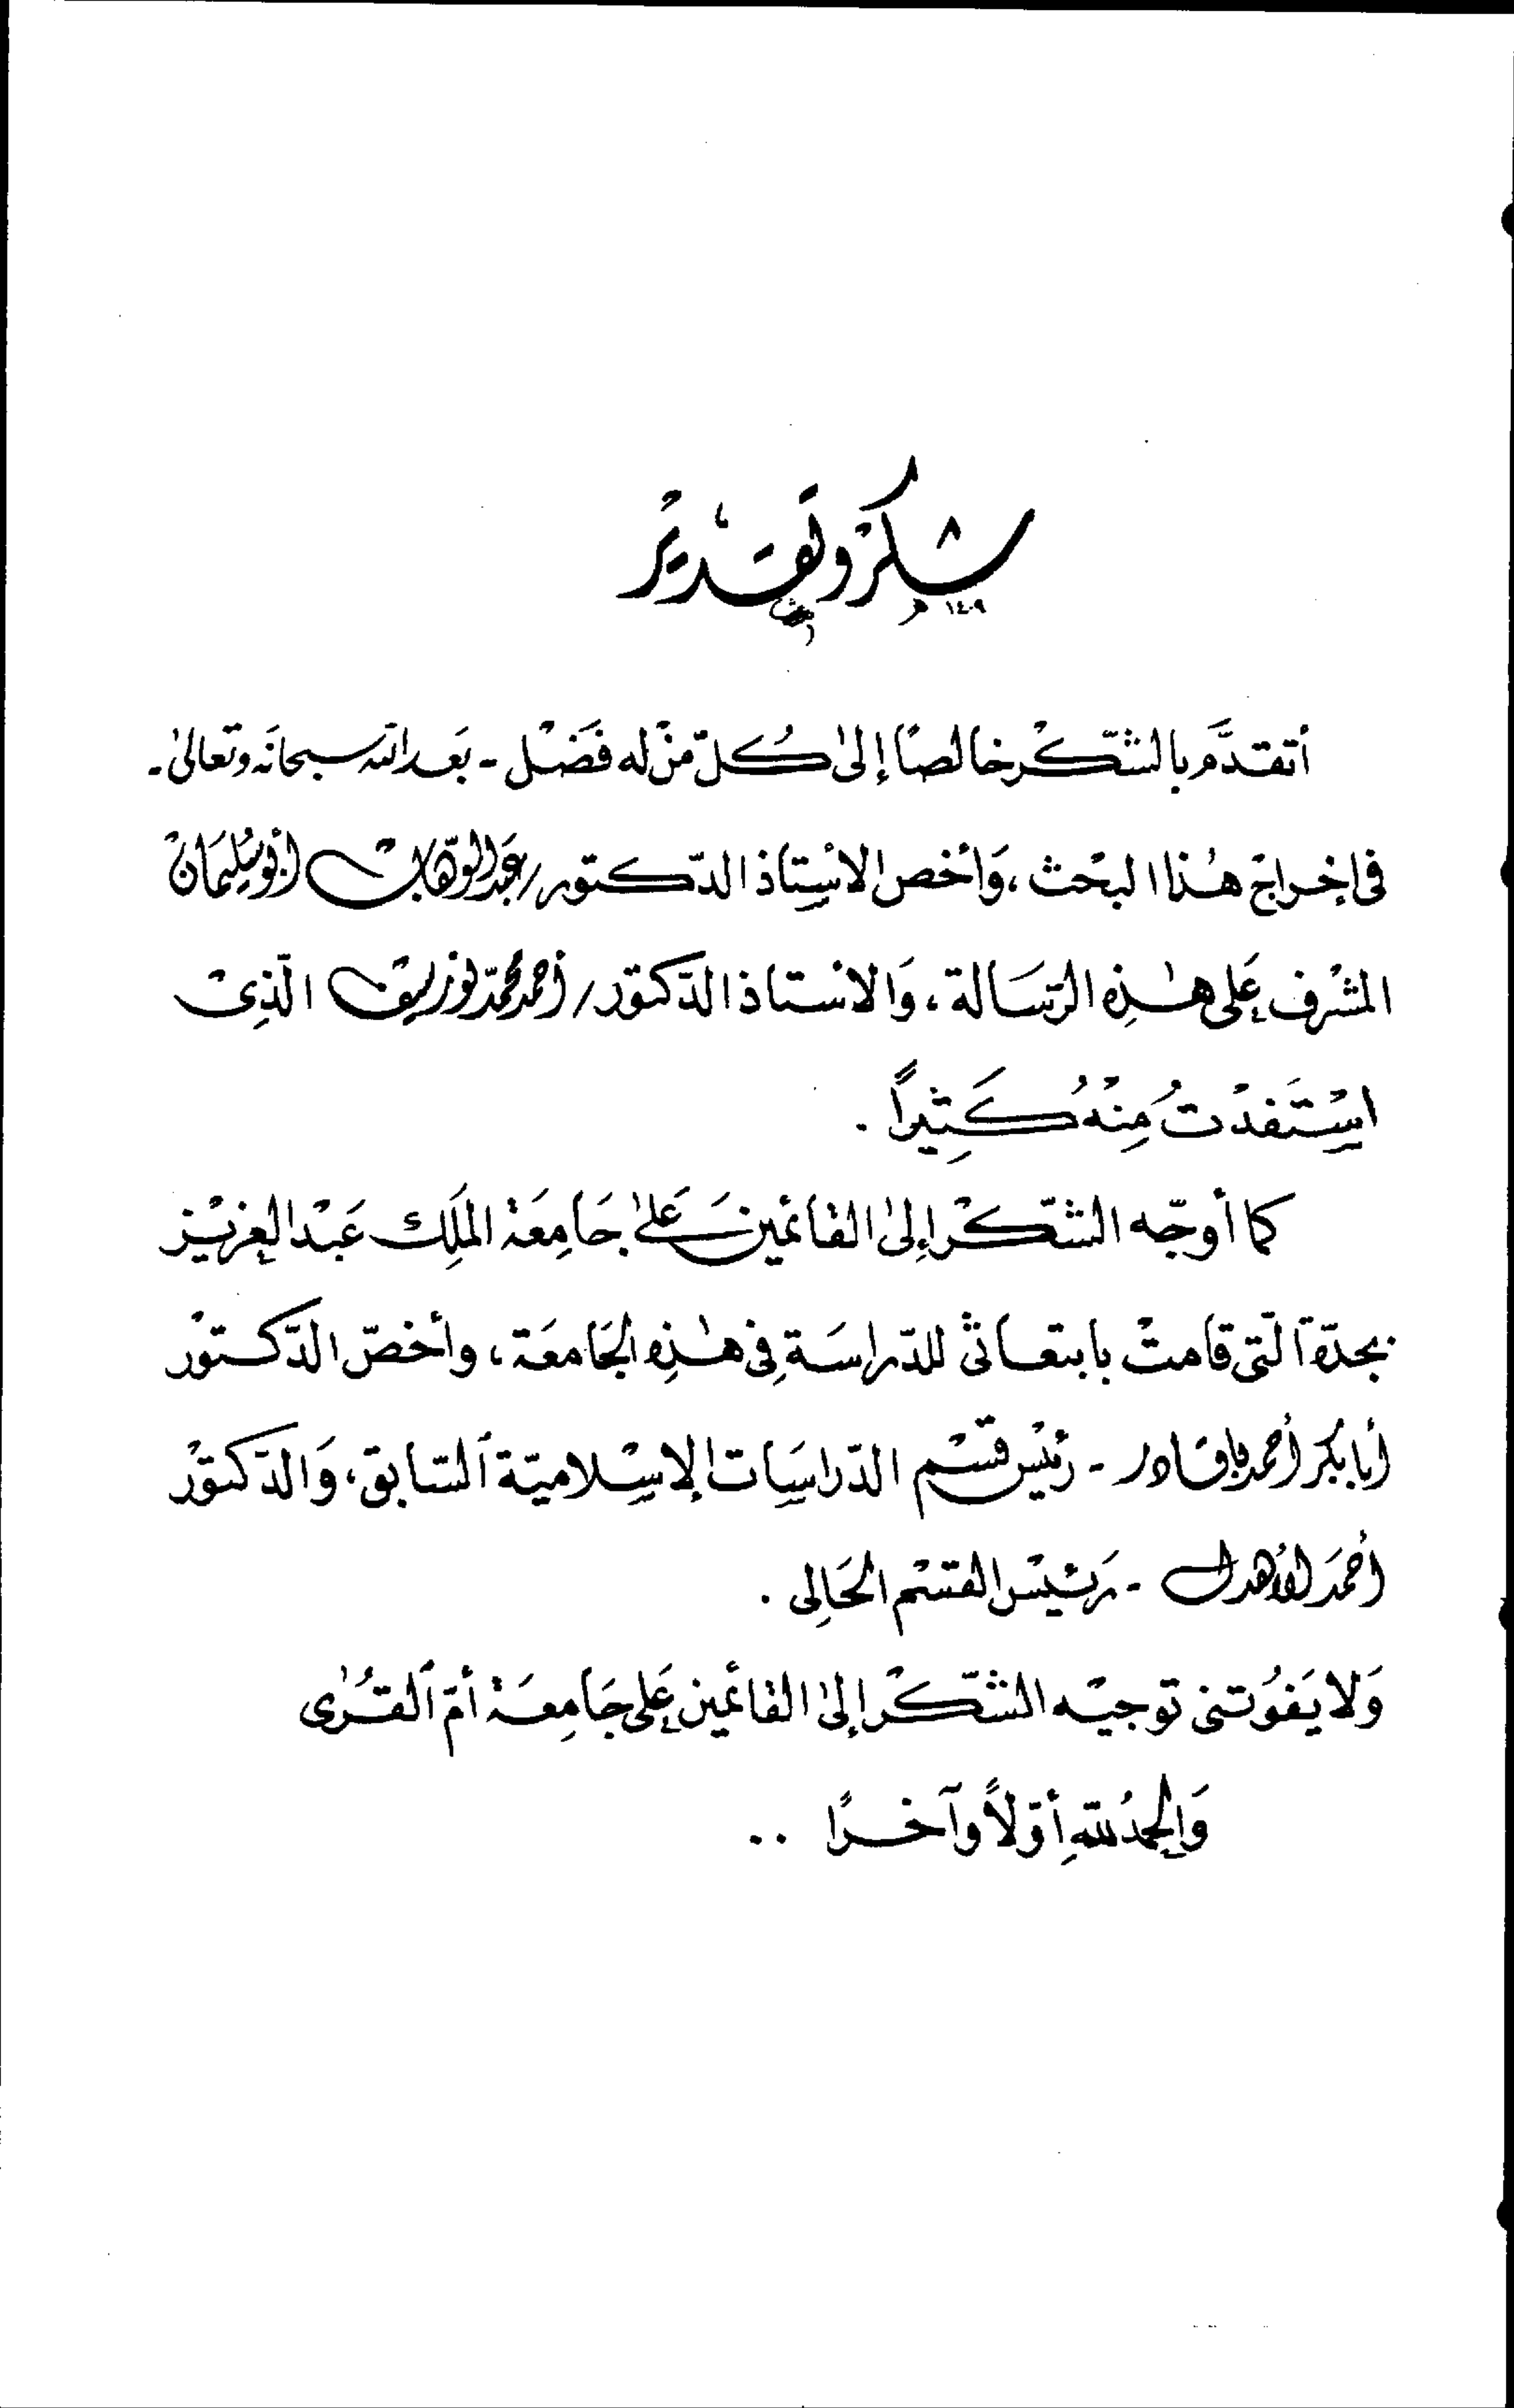 شكر وتقدير
١٤٠٩ هـ
أتقدَّم بالشّكْر خالصًا إلىٰ كُلّ مَنْ له فَضْل - بَعد الله سبحانَه وتعالىٰ -
في إخراج هٰذا البَحْث ، وَأخص الاسْتَاذ الدّكتور / عَبْد الوَهّاب أبُو سُلَيْمَان
المشْرف عَلى هٰذِه الرّسَالة ، وَالاسْتاذ الدّكتور / أحمد محمّد نور سيف الّذِى
اسْتَفدْتُ مِنْهُ كَثِيراً .
كما أوجّه الشّكْر إلىٰ القائمين عَلىٰ جَامِعَة الملِك عَبْد العزيْز
بجدّة الّتى قامتْ بابتعاثى للدّراسَة فِى هٰذِه الجَامعَة ، وأخصّ الدّكتوْر
أبا بكر أحمد باقادر - رئيْس قسْم الدّراسَات الإسْلاميّة السّابق ، وَالدّكتوْر
أحْمَد الأهدل - رَئيْس القسْم الحَالِى .
وَلا يَفُوتنى توجيْه الشّكْر إلىٰ القائمين عَلى جَامِعَة أمّ القُرىٰ
وَالحمْدُ للهِ أوّلاً وآخرًا ..